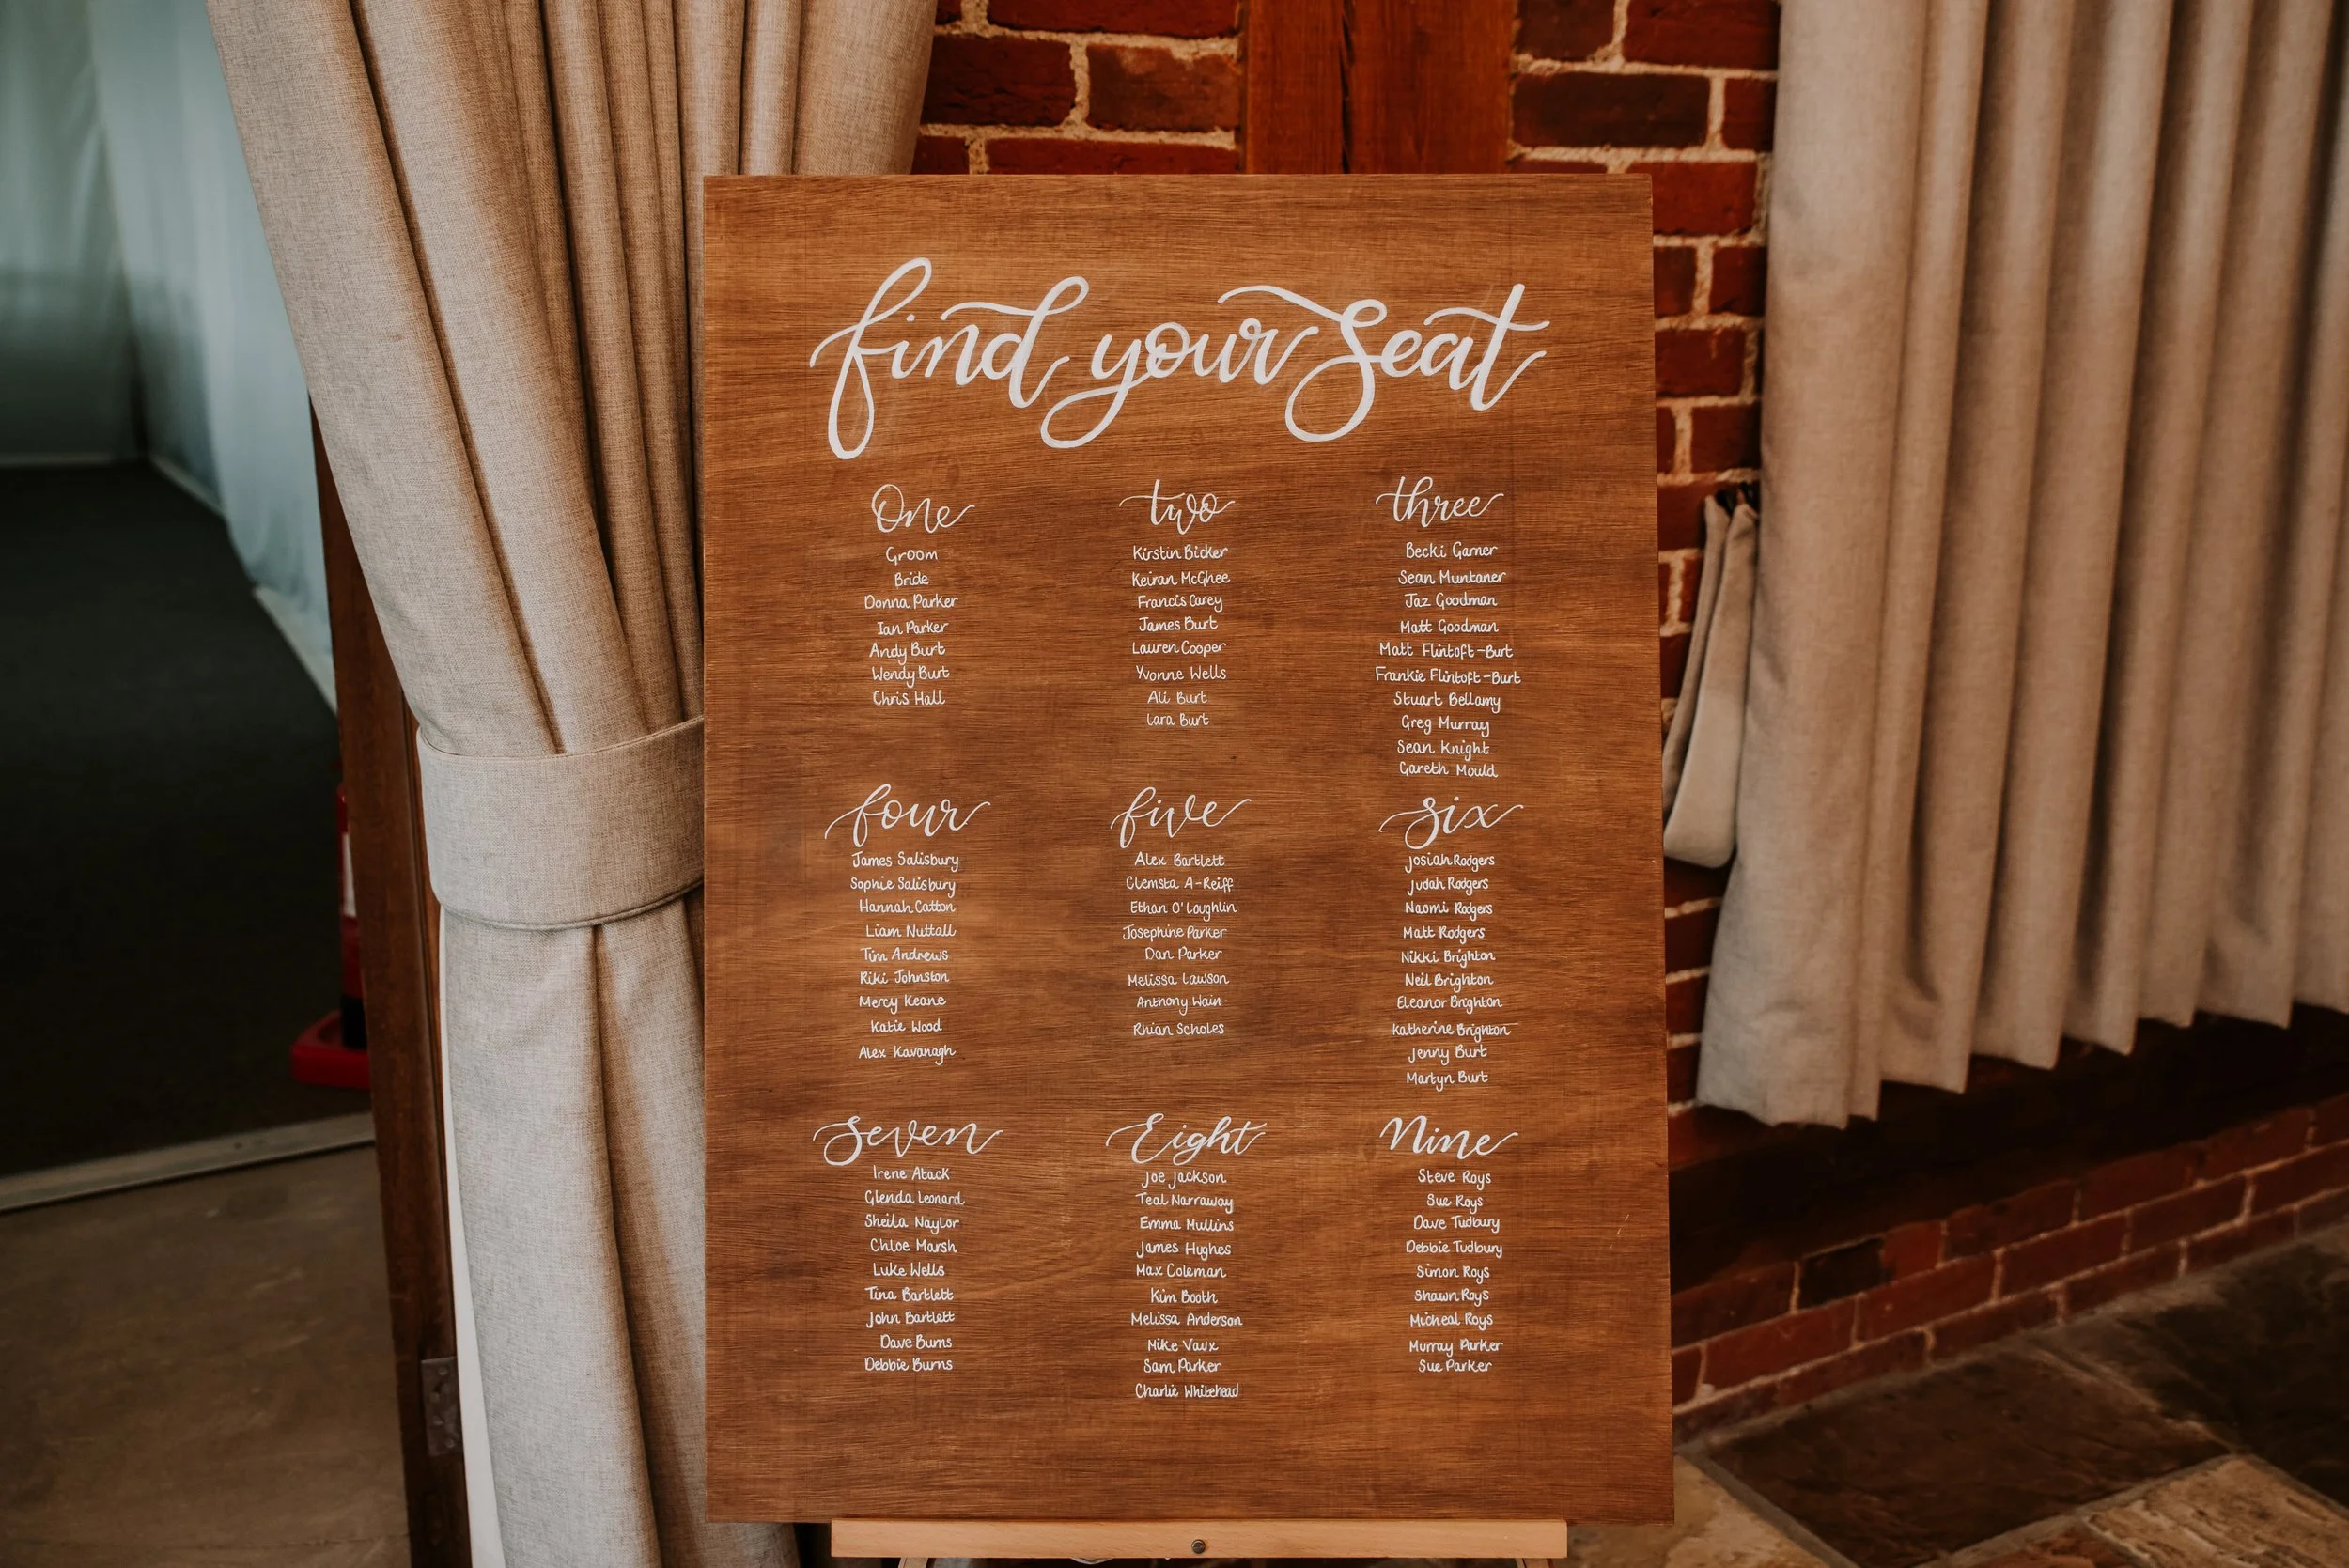 find your seat
One
Groom
Bride
Donna Parker
Ian Parker
Andy Burt
Wendy Burt
Chris Hall
two
Kirstin Bicker
Keiran McGhee
Francis Carey
James Burt
Lauren Cooper
Yvonne Wells
Ali Burt
Lara Burt
three
Becki Garner
Sean Muntaner
Jaz Goodman
Matt Goodman
Matt Flintoft-Burt
Frankie Flintoft-Burt
Stuart Bellamy
Greg Murray
Sean Knight
Gareth Mould
four
James Salisbury
Sophie Salisbury
Hannah Catton
Liam Nuttall
Tim Andrews
Riki Johnston
Mercy Keane
Katie Wood
Alex Kavanagh
five
Alex Bartlett
Clemsta A-Reiff
Ethan O'Loughlin
Josephine Parker
Dan Parker
Melissa Lawson
Anthony Wain
Rhian Scholes
six
Josiah Rodgers
Judah Rodgers
Naomi Rodgers
Matt Rodgers
Nikki Brighton
Neil Brighton
Eleanor Brighton
Katherine Brighton
Jenny Burt
Martyn Burt
seven
Irene Atack
Glenda Leonard
Sheila Naylor
Chloe Marsh
Luke Wells
Tina Bartlett
John Bartlett
Dave Burns
Debbie Burns
Eight
Joe Jackson
Teal Narraway
Emma Mullins
James Hughes
Max Coleman
Kim Booth
Melissa Anderson
Nike Vaux
Sam Parker
Charlie Whitehead
Nine
Steve Roys
Sue Roys
Dave Tudbury
Debbie Tudbury
Simon Roys
Shawn Roys
Micheal Roys
Murray Parker
Sue Parker